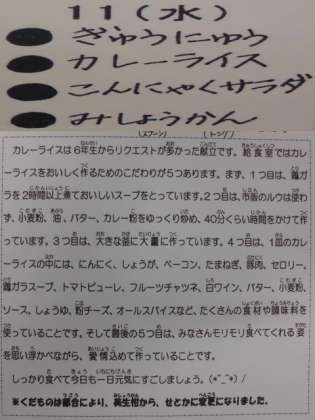 11(水)
ぎゅうにゅう
カレーライス
こんにゃくサラダ
みしょうかん
(スプーン) (トング)
カレーライスは6年生からリクエストが多かった献立です。給食室ではカレ
ーライスをおいしく作るためのこだわりが5つがあります。まず、1つ目は、鶏ガ
ラを2時間以上煮ておいしいスープをとっています。2つ目は、市販のルウは使わ
ず、小麦粉、油、バター、カレー粉をゆっくり炒め、40分くらい時間をかけて作
っています。3つ目は、大きな釜に大量に作っています。4つ目は、1皿のカレ
ーライスの中には、にんにく、しょうが、ベーコン、たまねぎ、豚肉、セロリー、
鶏ガラスープ、トマトピューレ、フルーツチャツネ、白ワイン、バター、小麦粉、
ソース、しょうゆ、粉チーズ、オールスパイスなど、たくさんの食材や調味料を
使っていることです。そして最後の5つ目は、みなさんモリモリ食べてくれる姿
を思い浮かべながら、愛情込めて作っていることです。
しっかり食べて今日も一日元気にすごしましょう。(*^_^*)/
※くだものは都合により、美生柑から、せとかに変更になりました。